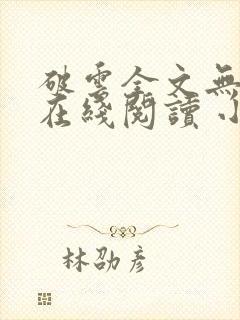 破雲全文無
在綫閱讀小
林劭彥